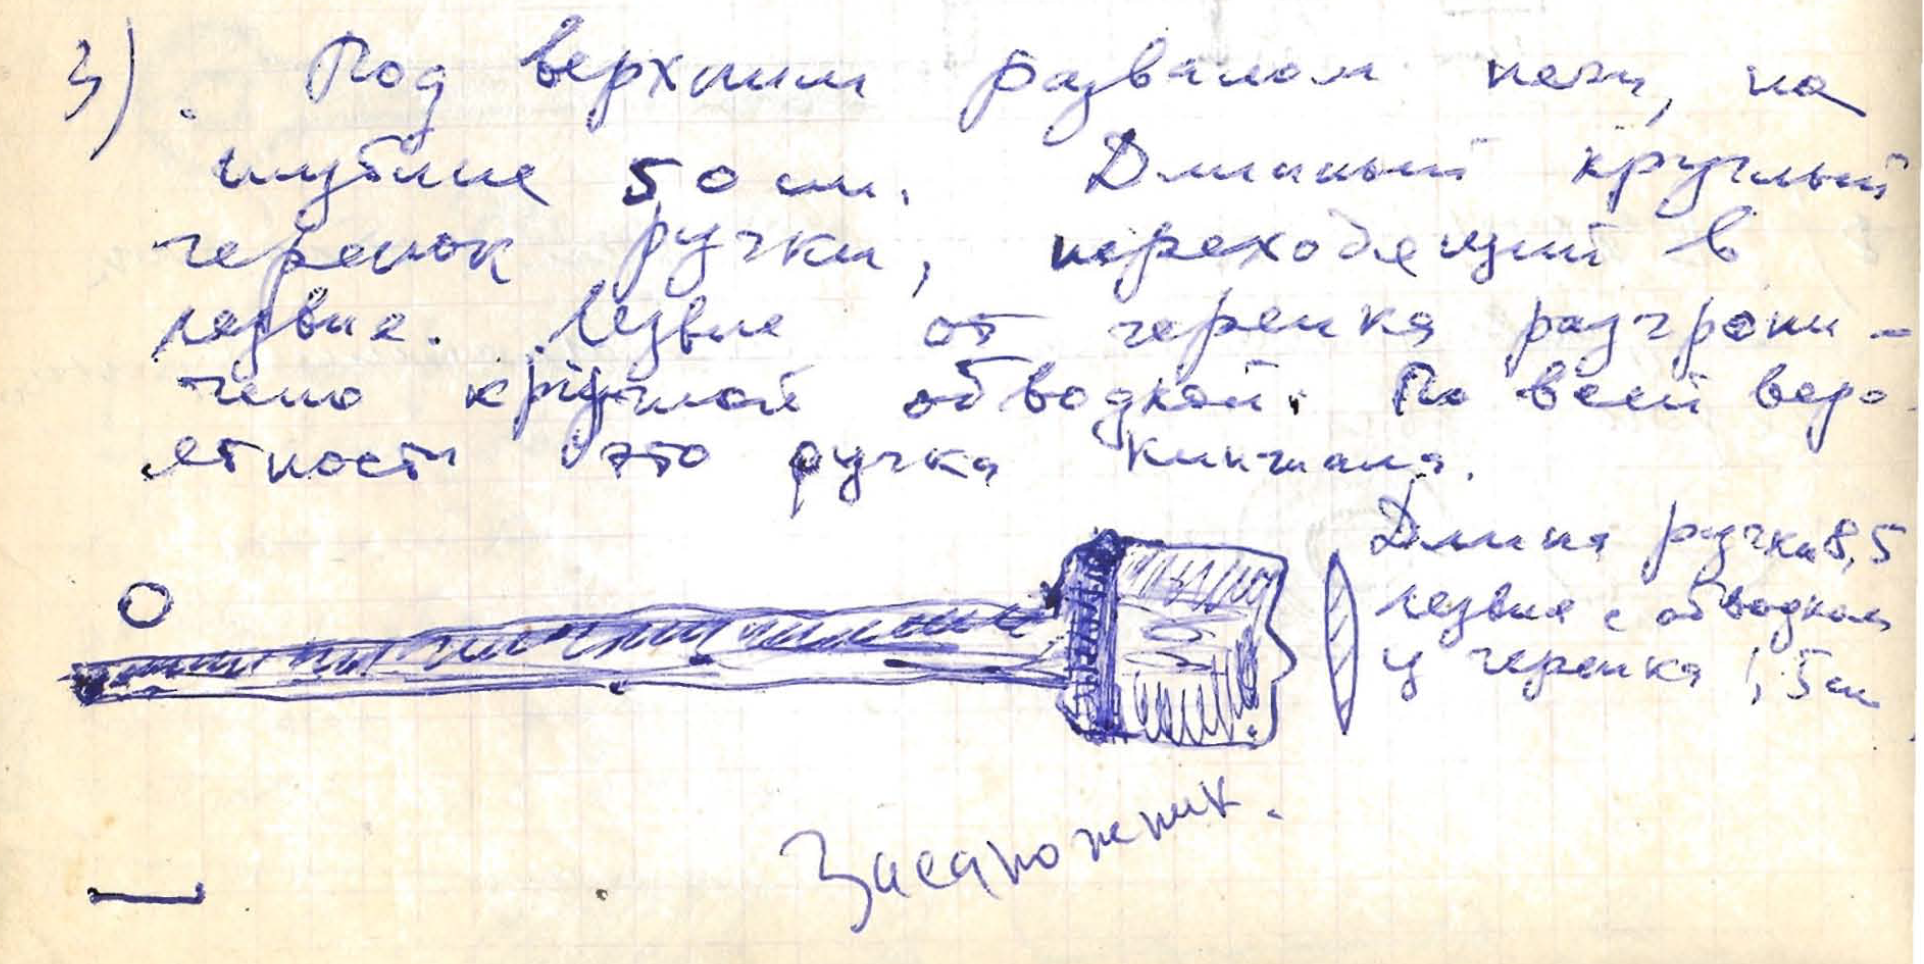 3). Под верхним развалом печи, на
глубине 50 см. Длинный круглый
черенок ручки, переходящий в
лезвие. Лезвие от черенка разграни-
чено круглой обводкой. По всей веро-
ятности это ручка кинжала.
Длина ручки 8,5
лезвия с обводкой
у черенка 1,5 см
Засапожник.